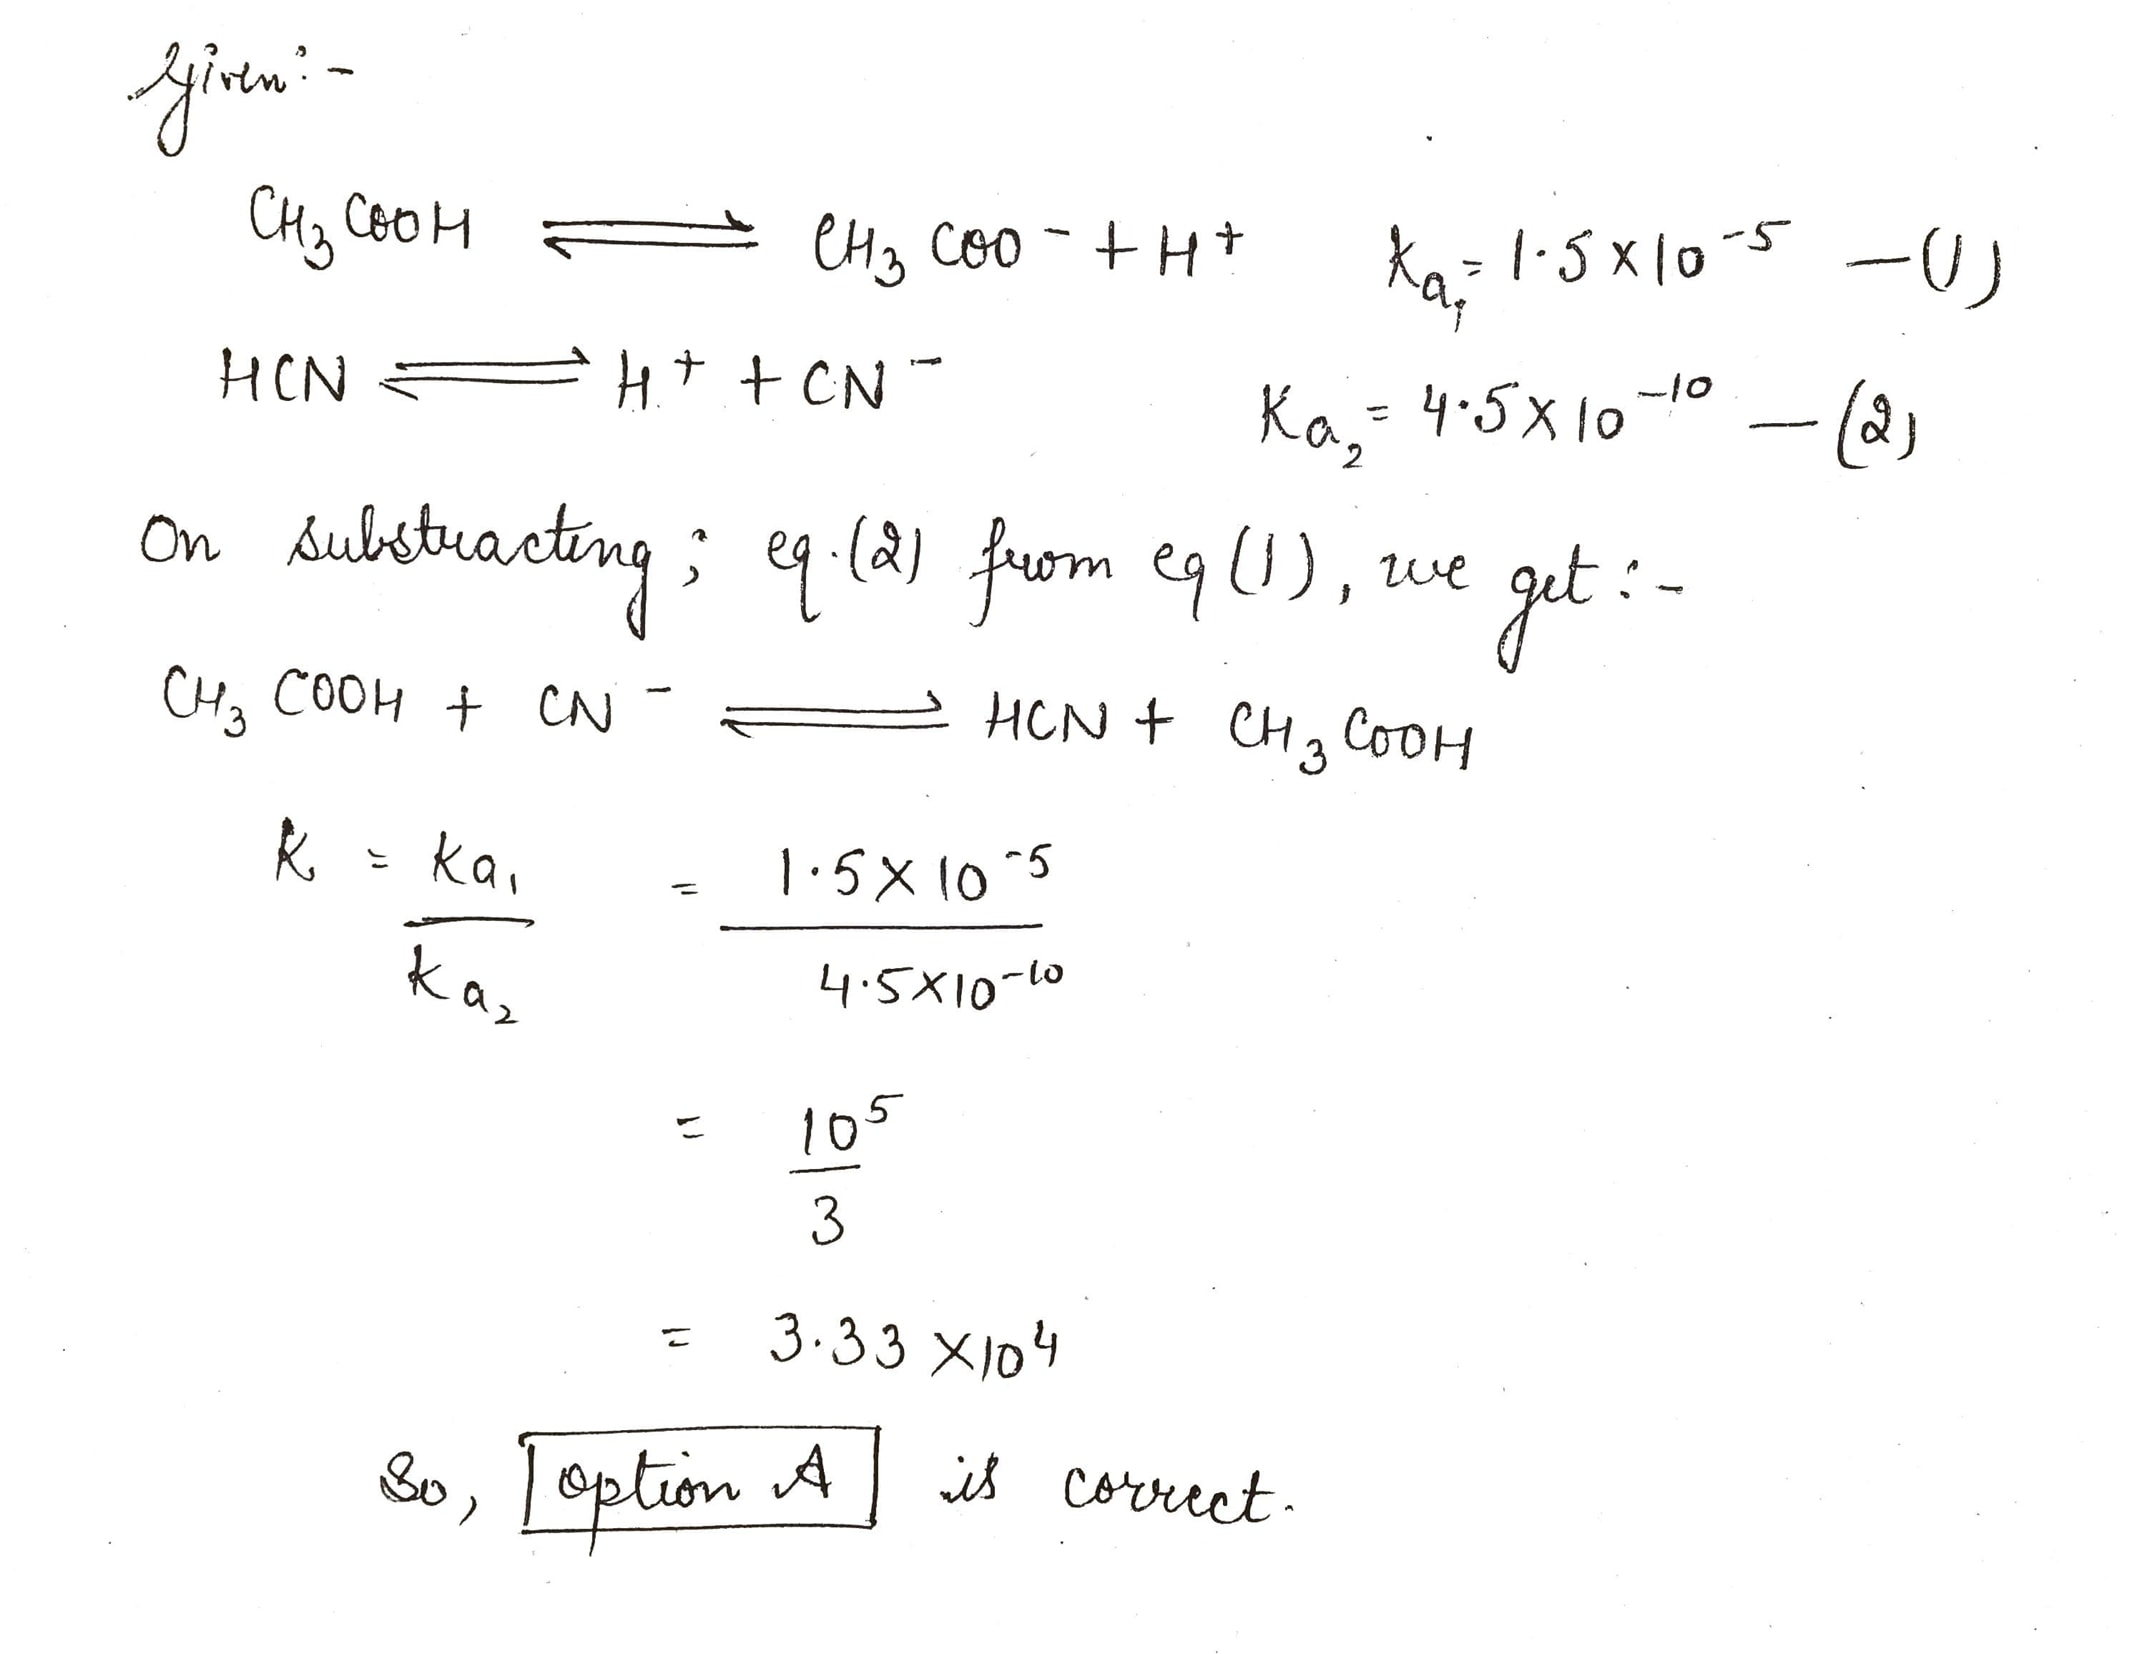 Given:-
CH₃COOH ⇌ CH₃COO⁻ + H⁺ Ka₁ = 1.5×10⁻⁵ —(1)
HCN ⇌ H⁺ + CN⁻ Ka₂ = 4.5×10⁻¹⁰ —(2)
On substracting; eq.(2) from eq(1), we get:-
CH₃COOH + CN⁻ ⇌ HCN + CH₃COOH
K = Ka₁ = 1.5×10⁻⁵
Ka₂ 4.5×10⁻¹⁰
= 10⁵
3
= 3.33 ×10⁴
So, option A is correct.